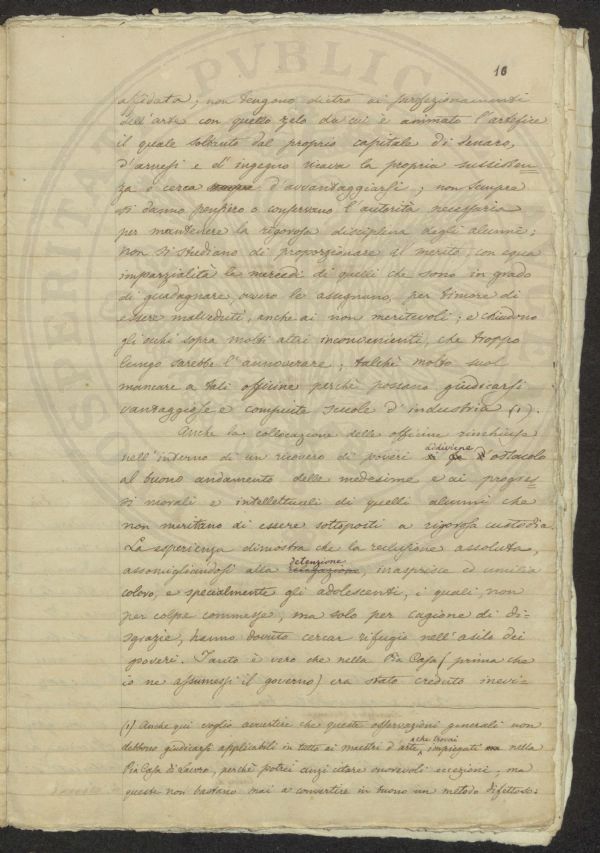 16
affidata; non tengono dietro ai perfezionamenti
dell'arte con quello zelo da cui è animato l'artefice
il quale soltanto dal proprio capitale di denaro,
d'arnesi e d'ingegno ricava la propria sussisten=
za e cerca sempre d'avvantaggiarsi; non sempre
si danno pensiero o conservano l'autorità necessaria
per mantenere la rigorosa disciplina degli alunni;
non si studiano di proporzionare al merito, con equa
imparzialità le mercedi di quelli che sono in grado
di guadagnare, ovvero le assegnano, per timore di
essere malveduti, anche ai non meritevoli; e chiudono
gli occhi sopra molti altri inconvenienti, che troppo
lungo sarebbe l'annoverare; talchè molto suol
mancare a tali officine perchè possano giudicarsi
vantaggiose e compiute scuole d'industria (1).
Anche la collocazione delle officine rinchiuse
nell'interno di un ricovero di poveri addiviene d'ostacolo
al buono andamento delle medesime e ai progres=
si morali e intellettuali di quelli alunni che
non meritano di essere sottoposti a rigorosa custodia.
La esperienza dimostra che la reclusione assoluta,
assomigliandosi alla detenzione, inasprisce ed umilia
coloro, e specialmente gli adolescenti, i quali, non
per colpe commesse, ma solo per cagione di di=
sgrazie, hanno dovuto cercar rifugio nell'asilo dei
poveri. Tanto è vero che nella Pia Casa (prima che
io ne assumessi il governo) era stato creduto inevi=
(1) Anche qui voglio avvertire che queste osservazioni generali non
debbono giudicarsi applicabili in tutto ai maestri d'arte, che trovai impiegati nella
Pia Casa di Lavoro, perchè potrei anzi citare onorevoli eccezioni; ma
queste non bastano mai a convertire in buono un metodo difettoso.